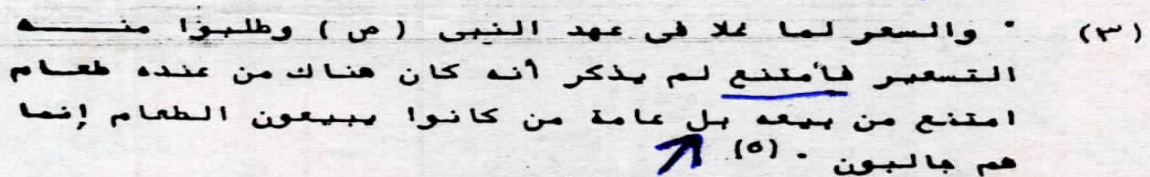 (٣) " والسعر لما غلا فى عهد النبى ( ص ) وطلبوا منـــه
التسعير فأمتنع لم يذكر أنه كان هناك من عنده طعـام
امتنع من بيعه بل عامة من كانوا يبيعون الطعام إنما
هم جالبون . (٥)